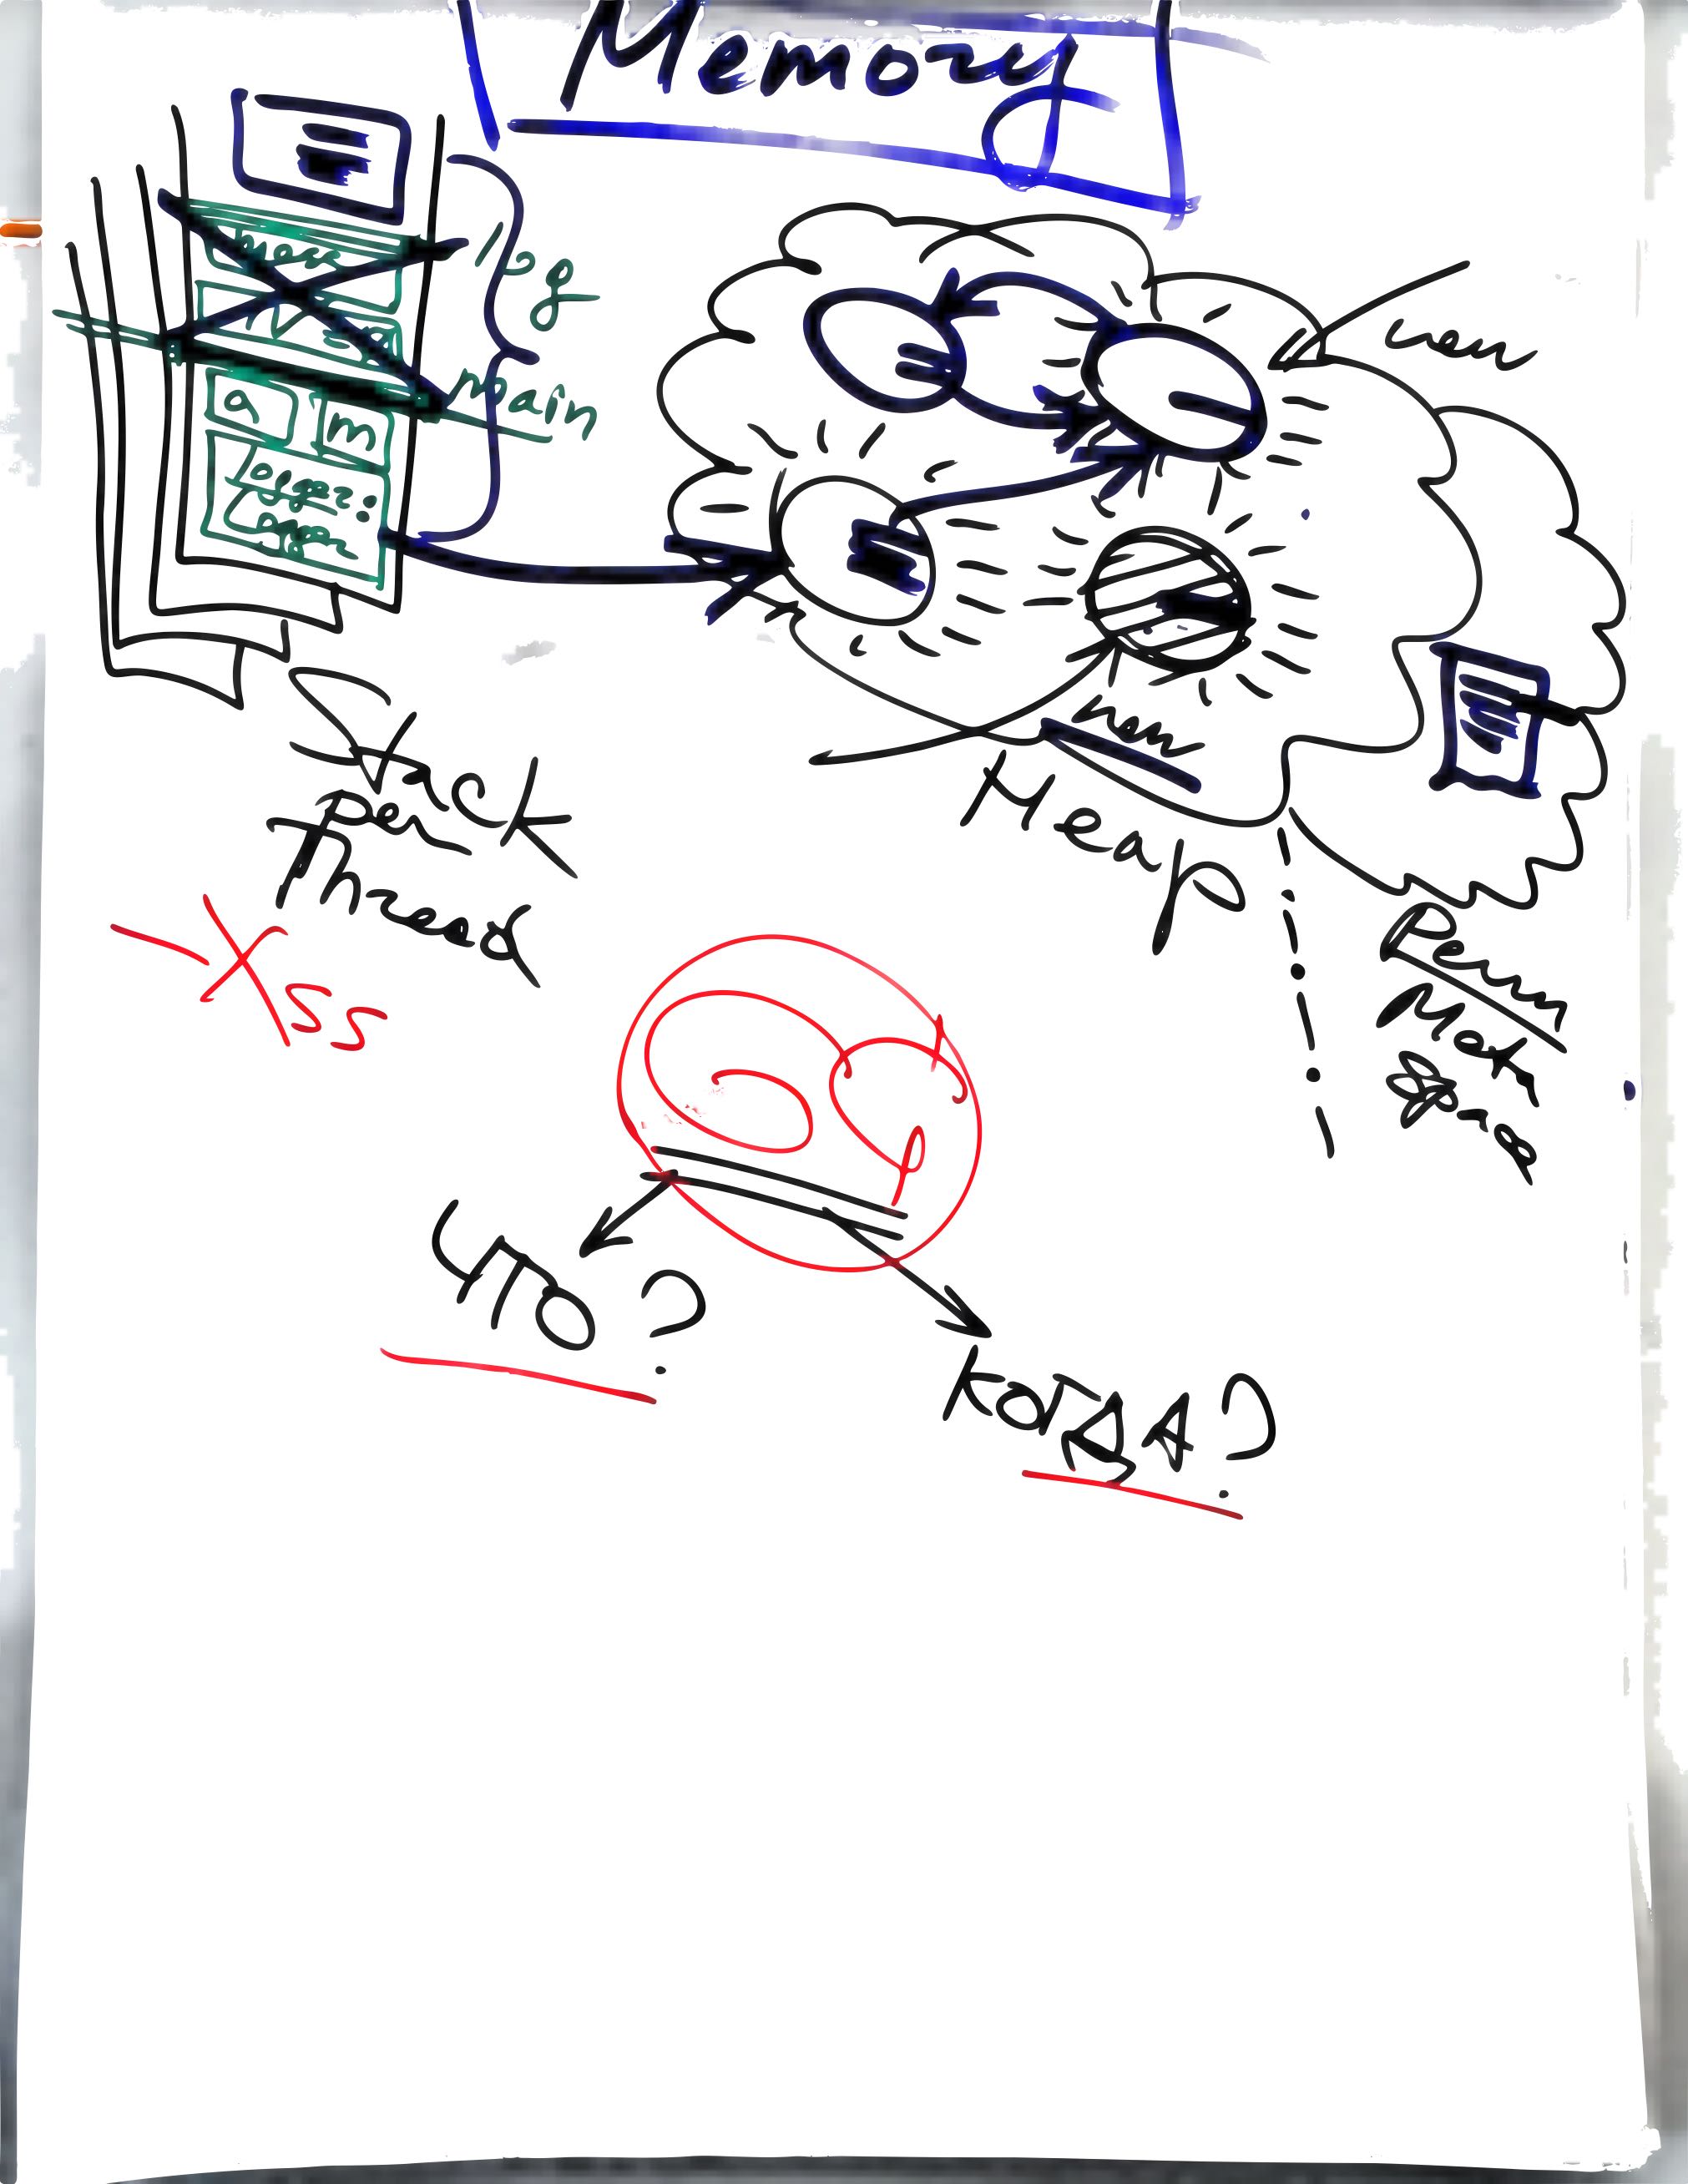 Memory
log
main
a m
Logger:
Logger
new
new
Stack
per
Thread
-Xss
Heap
Perm
Meta
Space
GC
ЧТО?
КОГДА?